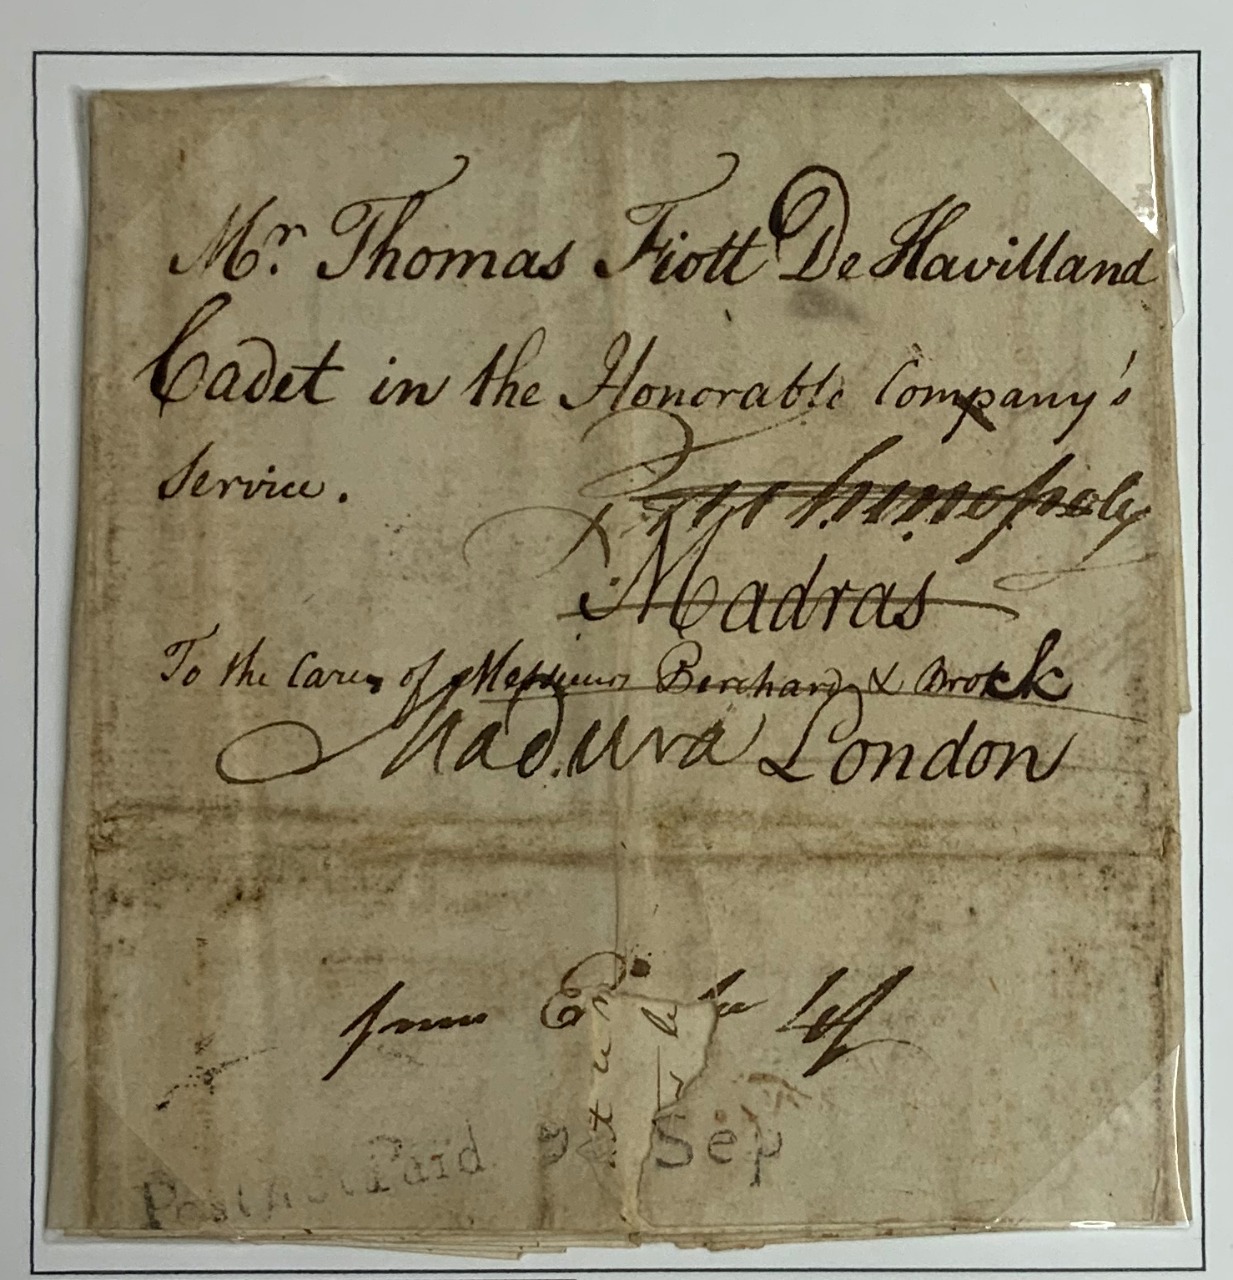 Mr. Thomas Fiott De Havilland
Cadet in the Honorable Company's
Service.
Trichinopoly
Madras
To the Care of Messieurs Berchard & Brock
Madura London
from
Post Paid
Sep